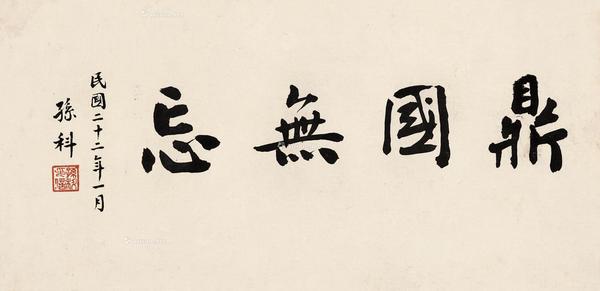 鼎國無忘
民國二十二年一月
孫科